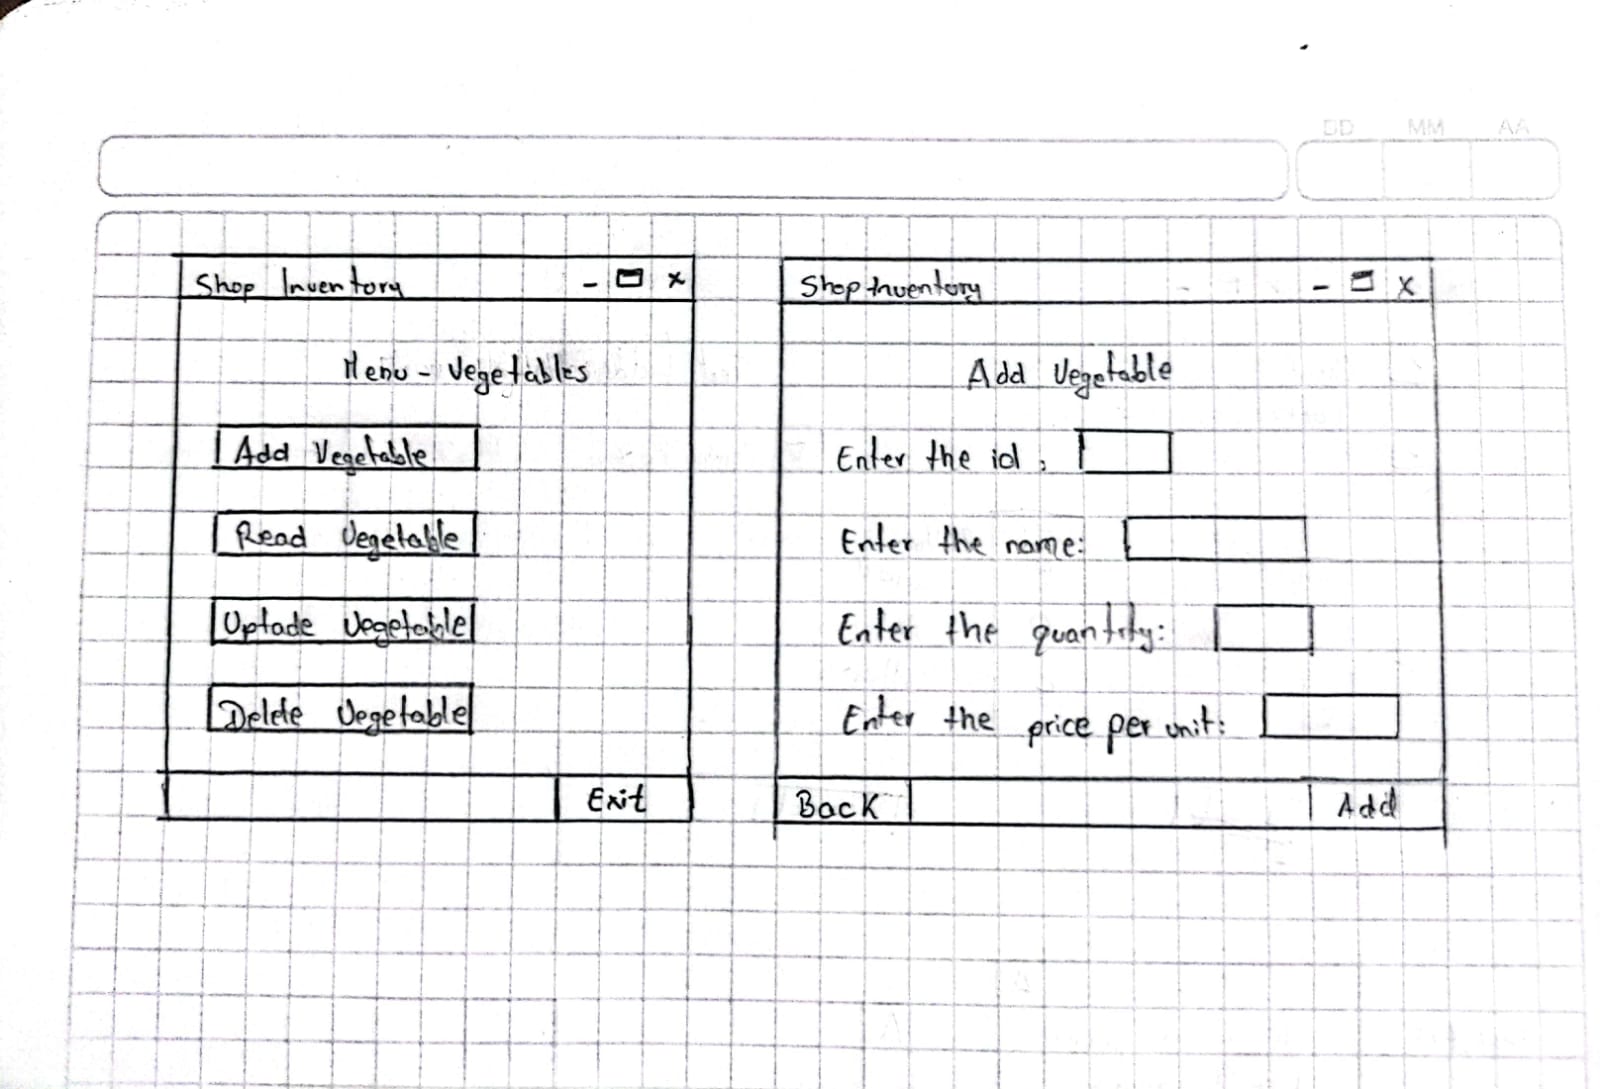 DD MM AA
Shop Inventory - x
Menu - Vegetables
Add Vegetable
Read Vegetable
Uptade Vegetable
Delete Vegetable
Exit
Shop Inventory - x
Add Vegetable
Enter the id :
Enter the name:
Enter the quantity:
Enter the price per unit:
Back Add